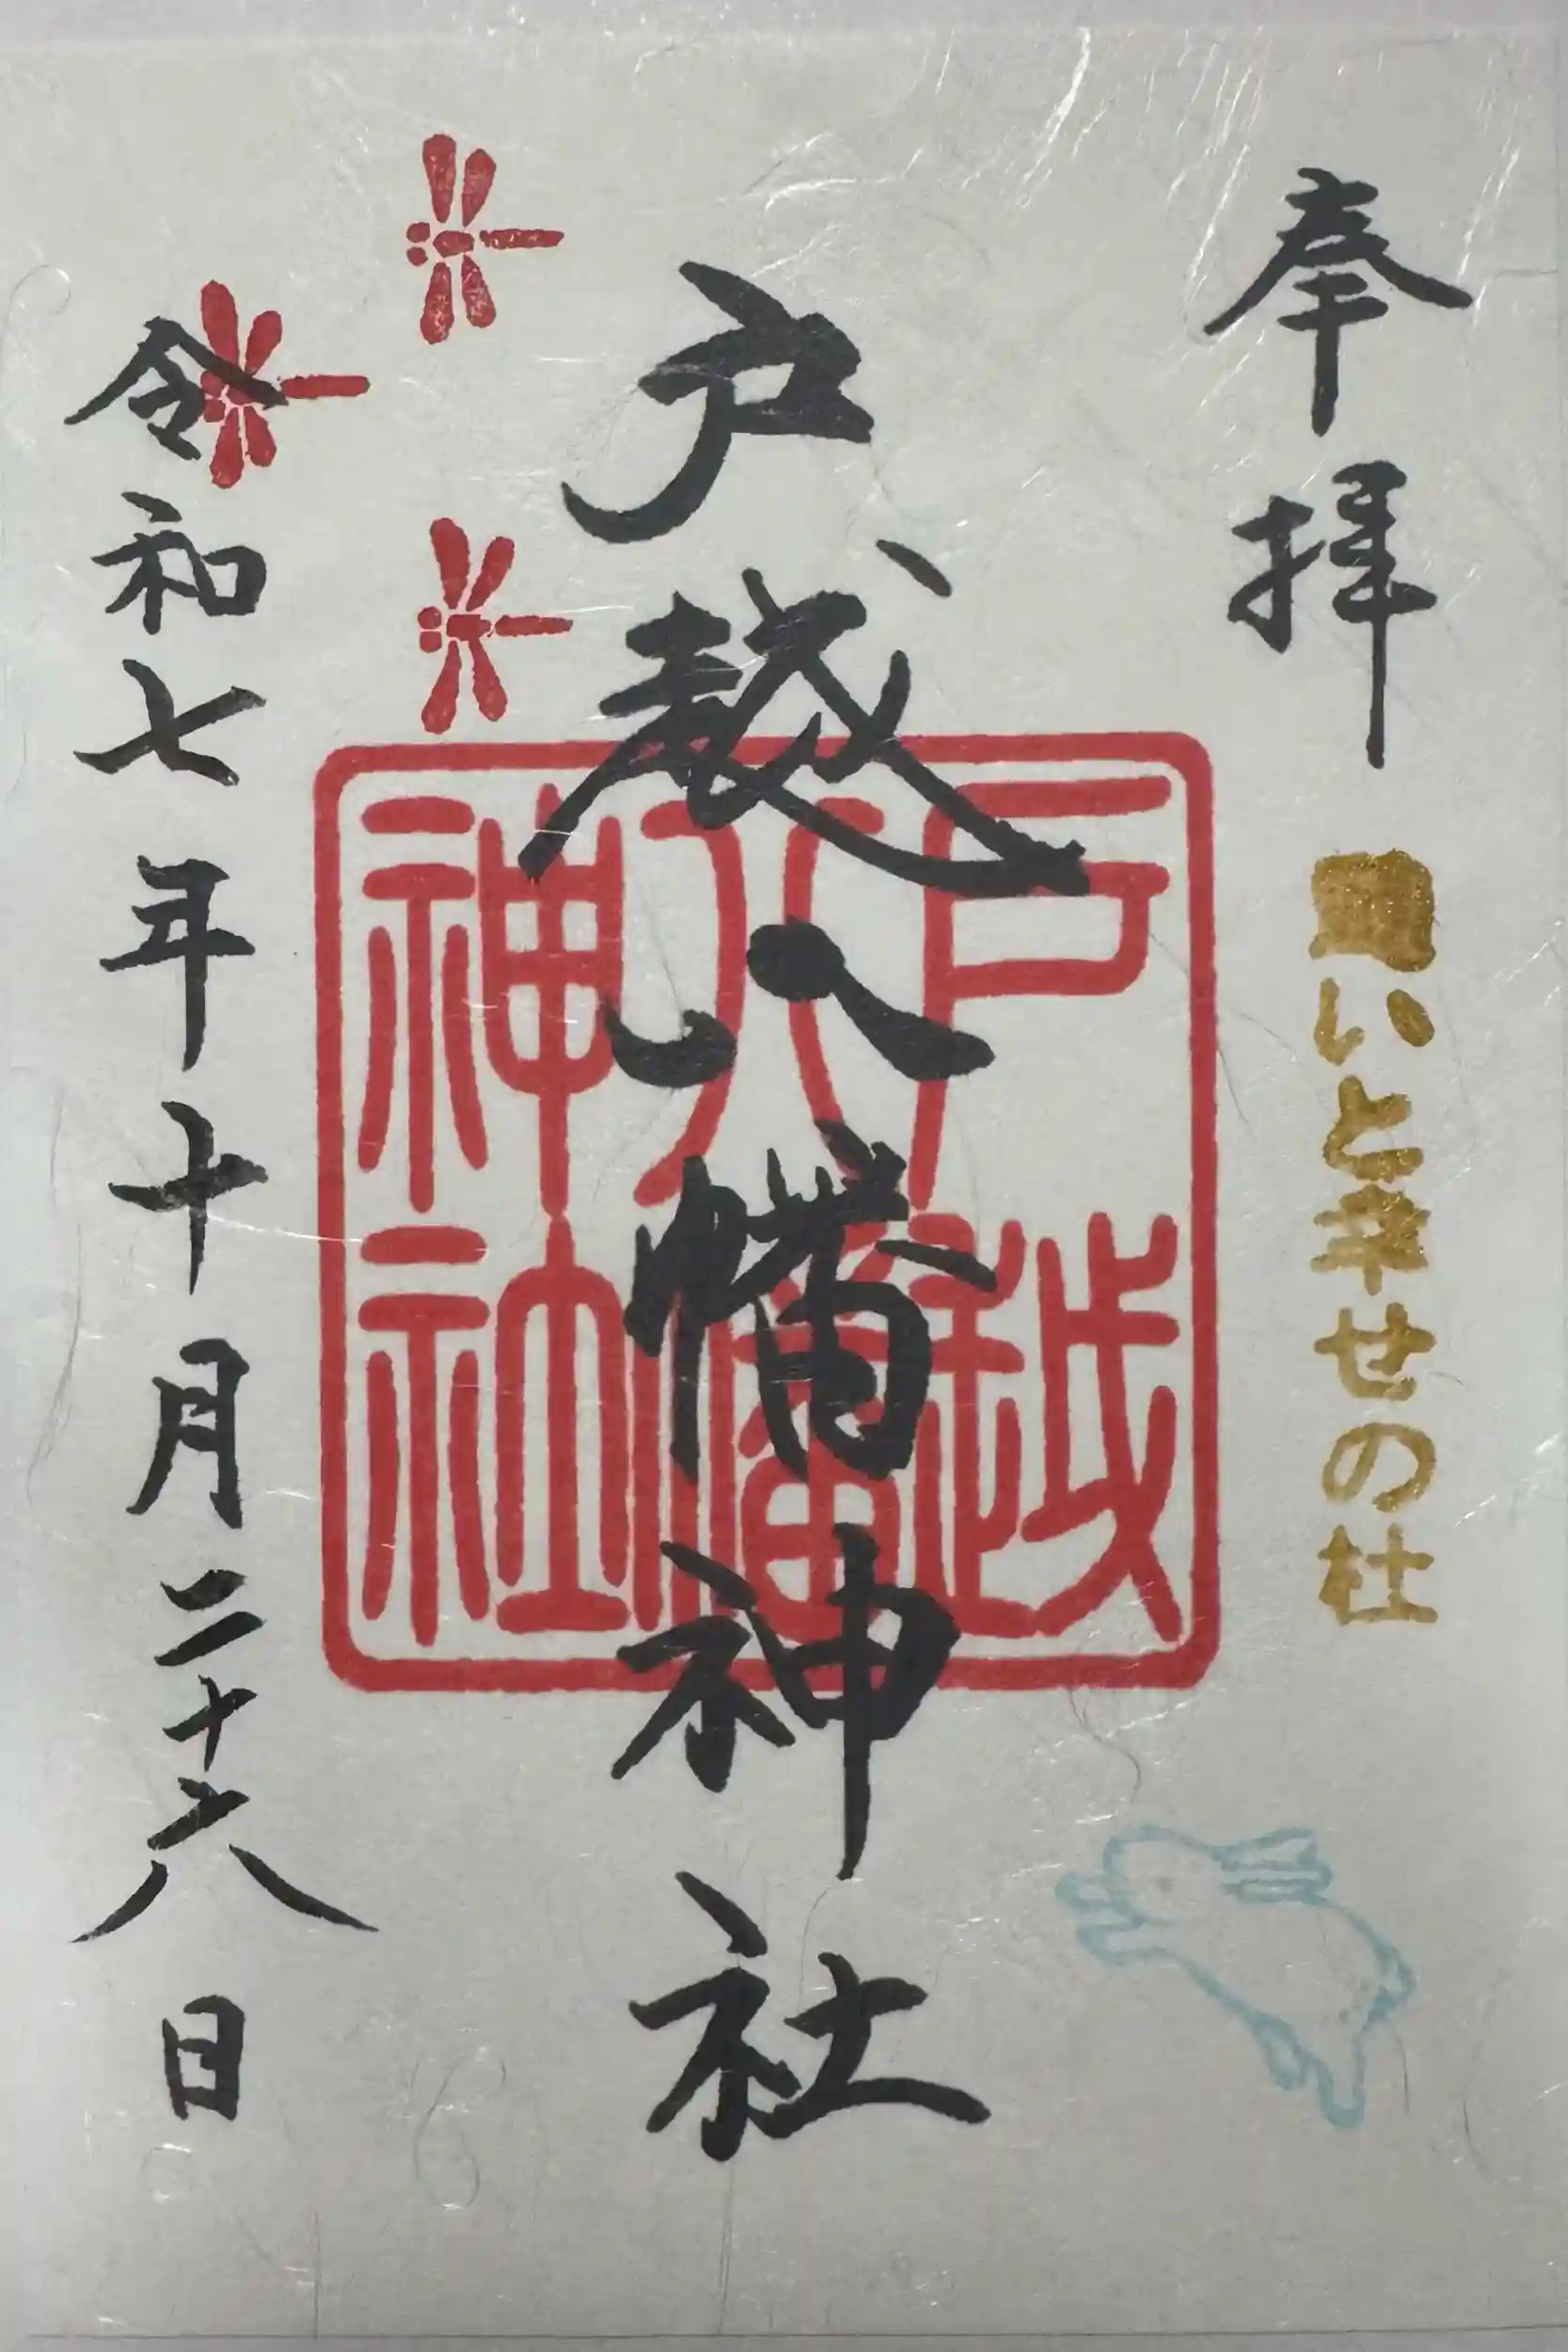 奉拝
いと幸せの杜
戸越八幡神社
戸越
八幡
神社
令和七年十月二十六日